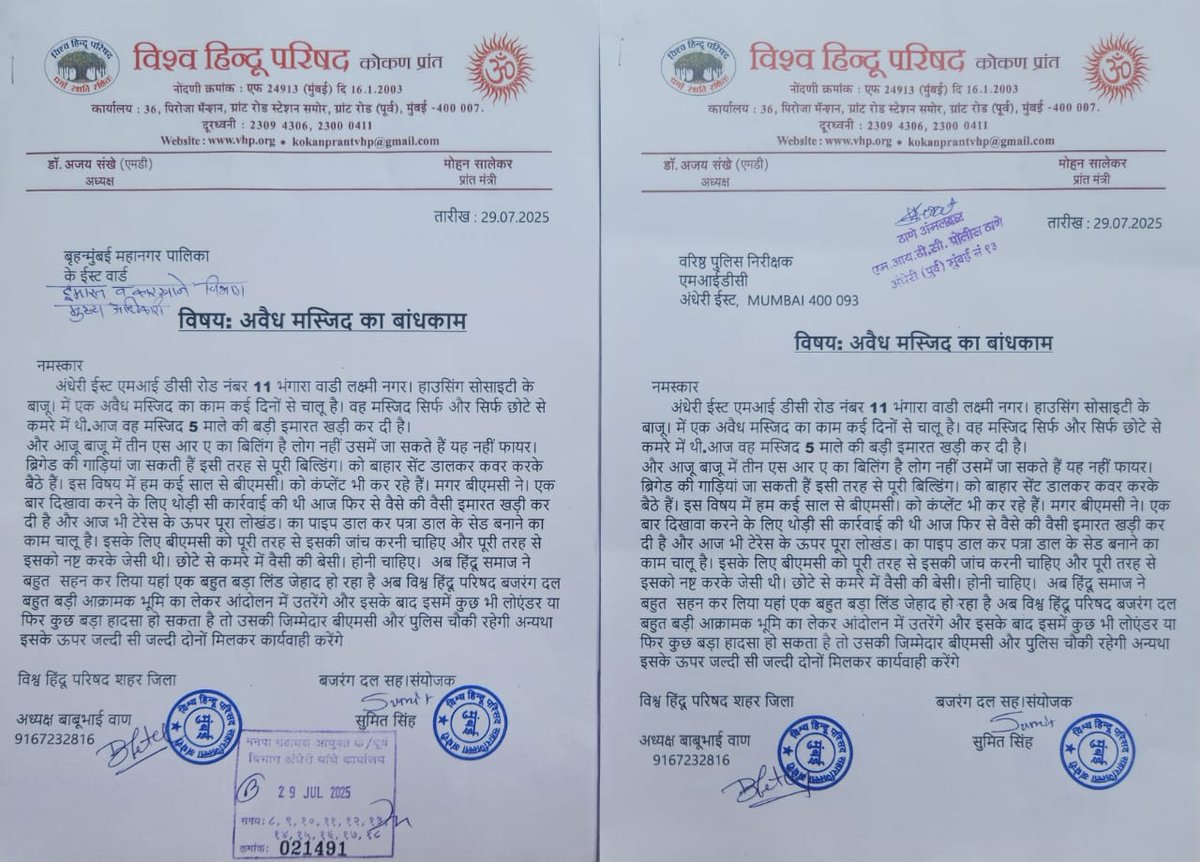 विश्व हिन्दू परिषद
धर्मो रक्षति रक्षितः
विश्व हिन्दू परिषद कोकण प्रांत
ॐ
नोंदणी क्रमांक : एफ 24913 (मुंबई) दि 16.1.2003
कार्यालय : 36, पिरोजा मॅन्शन, ग्रांट रोड स्टेशन समोर, ग्रांट रोड (पूर्व), मुंबई -400 007.
दूरध्वनी : 2309 4306, 2300 0411
Website : www.vhp.org • kokanprantvhp@gmail.com
डॉ. अजय संखे (एमडी) मोहन सालेकर
अध्यक्ष प्रांत मंत्री
तारीख : 29.07.2025
बृहन्मुंबई महानगर पालिका
के ईस्ट वार्ड
इमारत व कारखाने विभाग
मुख्य अधिकारी
विषय: अवैध मस्जिद का बांधकाम
नमस्कार
अंधेरी ईस्ट एमआई डीसी रोड नंबर 11 भंगारा वाडी लक्ष्मी नगर। हाउसिंग सोसाइटी के
बाजू। में एक अवैध मस्जिद का काम कई दिनों से चालू है। वह मस्जिद सिर्फ और सिर्फ छोटे से
कमरे में थी.आज वह मस्जिद 5 माले की बड़ी इमारत खड़ी कर दी है।
और आजू बाजू में तीन एस आर ए का बिलिंग है लोग नहीं उसमें जा सकते हैं यह नहीं फायर।
ब्रिगेड की गाड़ियां जा सकती हैं इसी तरह से पूरी बिल्डिंग। को बाहार सेंट डालकर कवर करके
बैठे हैं। इस विषय में हम कई साल से बीएमसी। को कंप्लेंट भी कर रहे हैं। मगर बीएमसी ने। एक
बार दिखावा करने के लिए थोड़ी सी कार्रवाई की थी आज फिर से वैसे की वैसी इमारत खड़ी कर
दी है और आज भी टेरेस के ऊपर पूरा लोखंड। का पाइप डाल कर पत्रा डाल के सेड बनाने का
काम चालू है। इसके लिए बीएमसी को पूरी तरह से इसकी जांच करनी चाहिए और पूरी तरह से
इसको नष्ट करके जेसी थी। छोटे से कमरे में वैसी की बेसी। होनी चाहिए। अब हिंदू समाज ने
बहुत सहन कर लिया यहां एक बहुत बड़ा लिंड जेहाद हो रहा है अब विश्व हिंदू परिषद बजरंग दल
बहुत बड़ी आक्रामक भूमि का लेकर आंदोलन में उतरेंगे और इसके बाद इसमें कुछ भी लोएंडर या
फिर कुछ बड़ा हादसा हो सकता है तो उसकी जिम्मेदार बीएमसी और पुलिस चौकी रहेगी अन्यथा
इसके ऊपर जल्दी सी जल्दी दोनों मिलकर कार्यवाही करेंगे
विश्व हिंदू परिषद शहर जिला बजरंग दल सह।संयोजक
Sumit
अध्यक्ष बाबूभाई वाण सुमित सिंह
9167232816
मुंबई
मुंबई
मनपा सहाय्यक आयुक्त के/पूर्व
विभाग अंधेरी यांचे कार्यालय
B 29 JUL 2025
समय: ८, ९, १०, ११, १२, १३
१४, १५, १६, १७, १८
क्रमांक: 021491
विश्व हिन्दू परिषद
धर्मो रक्षति रक्षितः
विश्व हिन्दू परिषद कोकण प्रांत
ॐ
नोंदणी क्रमांक : एफ 24913 (मुंबई) दि 16.1.2003
कार्यालय : 36, पिरोजा मॅन्शन, ग्रांट रोड स्टेशन समोर, ग्रांट रोड (पूर्व), मुंबई -400 007.
दूरध्वनी : 2309 4306, 2300 0411
Website : www.vhp.org • kokanprantvhp@gmail.com
डॉ. अजय संखे (एमडी) मोहन सालेकर
अध्यक्ष प्रांत मंत्री
ठाणे अंमलदार
एम.आय.डी.सी. पोलीस ठाणे
अंधेरी (पुर्व) मुंबई नं १३
तारीख : 29.07.2025
वरिष्ठ पुलिस निरीक्षक
एमआईडीसी
अंधेरी ईस्ट, MUMBAI 400 093
विषय: अवैध मस्जिद का बांधकाम
नमस्कार
अंधेरी ईस्ट एमआई डीसी रोड नंबर 11 भंगारा वाडी लक्ष्मी नगर। हाउसिंग सोसाइटी के
बाजू। में एक अवैध मस्जिद का काम कई दिनों से चालू है। वह मस्जिद सिर्फ और सिर्फ छोटे से
कमरे में थी.आज वह मस्जिद 5 माले की बड़ी इमारत खड़ी कर दी है।
और आजू बाजू में तीन एस आर ए का बिलिंग है लोग नहीं उसमें जा सकते हैं यह नहीं फायर।
ब्रिगेड की गाड़ियां जा सकती हैं इसी तरह से पूरी बिल्डिंग। को बाहार सेंट डालकर कवर करके
बैठे हैं। इस विषय में हम कई साल से बीएमसी। को कंप्लेंट भी कर रहे हैं। मगर बीएमसी ने। एक
बार दिखावा करने के लिए थोड़ी सी कार्रवाई की थी आज फिर से वैसे की वैसी इमारत खड़ी कर
दी है और आज भी टेरेस के ऊपर पूरा लोखंड। का पाइप डाल कर पत्रा डाल के सेड बनाने का
काम चालू है। इसके लिए बीएमसी को पूरी तरह से इसकी जांच करनी चाहिए और पूरी तरह से
इसको नष्ट करके जेसी थी। छोटे से कमरे में वैसी की बेसी। होनी चाहिए। अब हिंदू समाज ने
बहुत सहन कर लिया यहां एक बहुत बड़ा लिंड जेहाद हो रहा है अब विश्व हिंदू परिषद बजरंग दल
बहुत बड़ी आक्रामक भूमि का लेकर आंदोलन में उतरेंगे और इसके बाद इसमें कुछ भी लोएंडर या
फिर कुछ बड़ा हादसा हो सकता है तो उसकी जिम्मेदार बीएमसी और पुलिस चौकी रहेगी अन्यथा
इसके ऊपर जल्दी सी जल्दी दोनों मिलकर कार्यवाही करेंगे
विश्व हिंदू परिषद शहर जिला बजरंग दल सह।संयोजक
Sumit
अध्यक्ष बाबूभाई वाण सुमित सिंह
9167232816
मुंबई
मुंबई